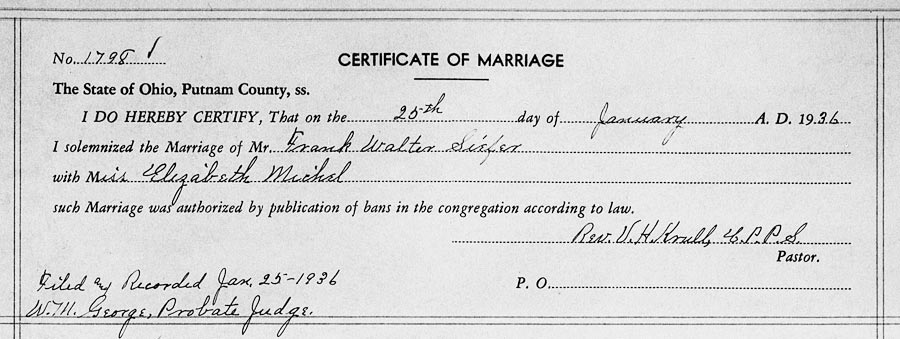 No. 1798
CERTIFICATE OF MARRIAGE
The State of Ohio, Putnam County, ss.
I DO HEREBY CERTIFY, That on the 25th day of January A. D. 1936
I solemnized the Marriage of Mr. Frank Walter Siefer
with Miss Elizabeth Michel
such Marriage was authorized by publication of bans in the congregation according to law.
Rev. V. H. Krull, C. P. P. S.
Pastor.
Filed & Recorded Jan. 25-1936
P. O.
W. M. George, Probate Judge.